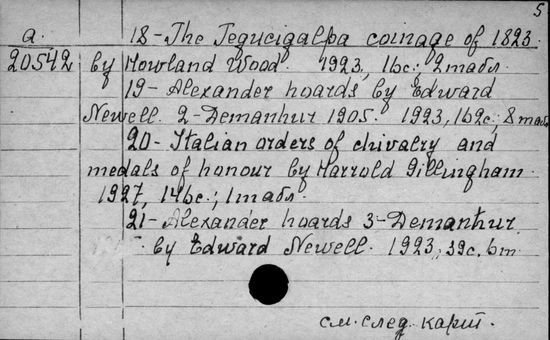 5
a. 18-The Tegucigalpa coinage of 1823
20542 by Howland Wood. 1923, 16c; 2табл.
19-Alexander hoards by Edward
Newell. 2-Demanhur 1905. 1923, 162c; 8табл
20-Italian orders of chivalry and
medals of honour by Harrold Gillingham.
1927, 146c.; 1табл.
21-Alexander hoards 3-Demanhur
by Edward Newell. 1923, 39c.
см. след. карт.